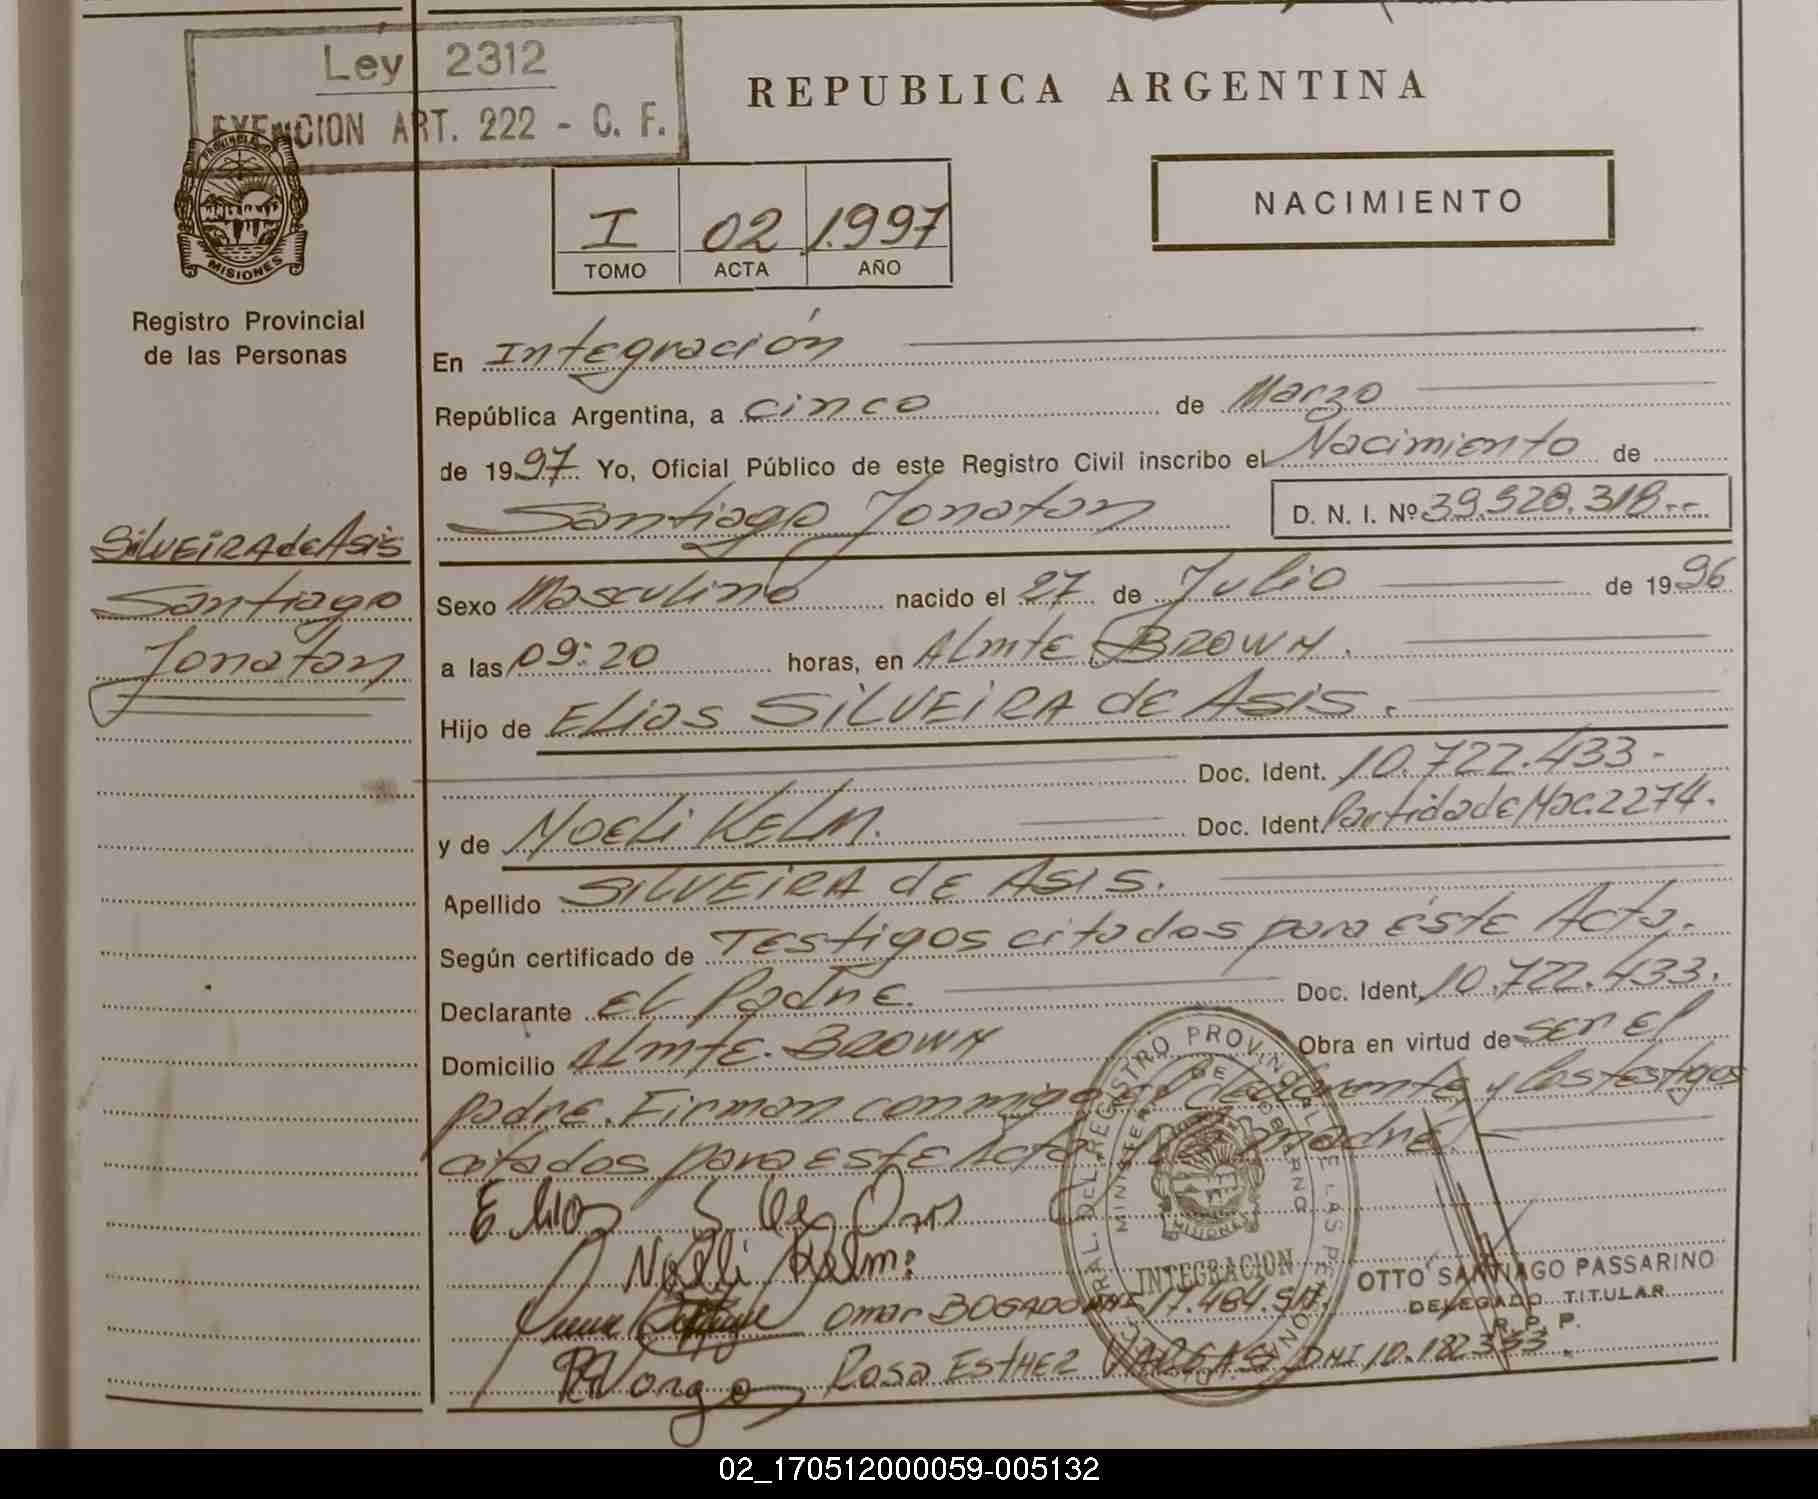 Ley 2312
EXENCION ART. 222 - C. F.
REPUBLICA ARGENTINA
NACIMIENTO
I 02 1.997
TOMO ACTA AÑO
MISIONES
Registro Provincial
de las Personas
Silveira de Asis
Santiago
Jonatan
En Integración
República Argentina, a cinco de Marzo
de 1997. Yo, Oficial Público de este Registro Civil inscribo el Nacimiento de
Santiago Jonatan D. N. I. Nº 39.528.318.--
Sexo Masculino nacido el 27 de Julio de 1996
a las 09:20 horas, en Almte Brown.
Hijo de Elias Silveira de Asis.
Doc. Ident. 10.722.433-
y de Noeli Kelm. Doc. Ident. Partida de Nac. 2274.
Apellido Silveira de Asis.
Según certificado de Testigos citados para éste Acta.
Declarante el Padre. Doc. Ident. 10.722.433.
Domicilio Almte. Brown Obra en virtud de ser el
padre. Firman conmigo el declarante, y los testigos
citados para este Acta y la madre.-
Elias S de Asis
Noeli Kelm:
Omar BOGADO DNI 17.484.
R Vargas Rosa Esther VARGAS DNI 10.182.333.
INTEGRACION
MISIONES
OTTO SANTIAGO PASSARINO
DELEGADO TITULAR
R. P. P.
02_170512000059-005132